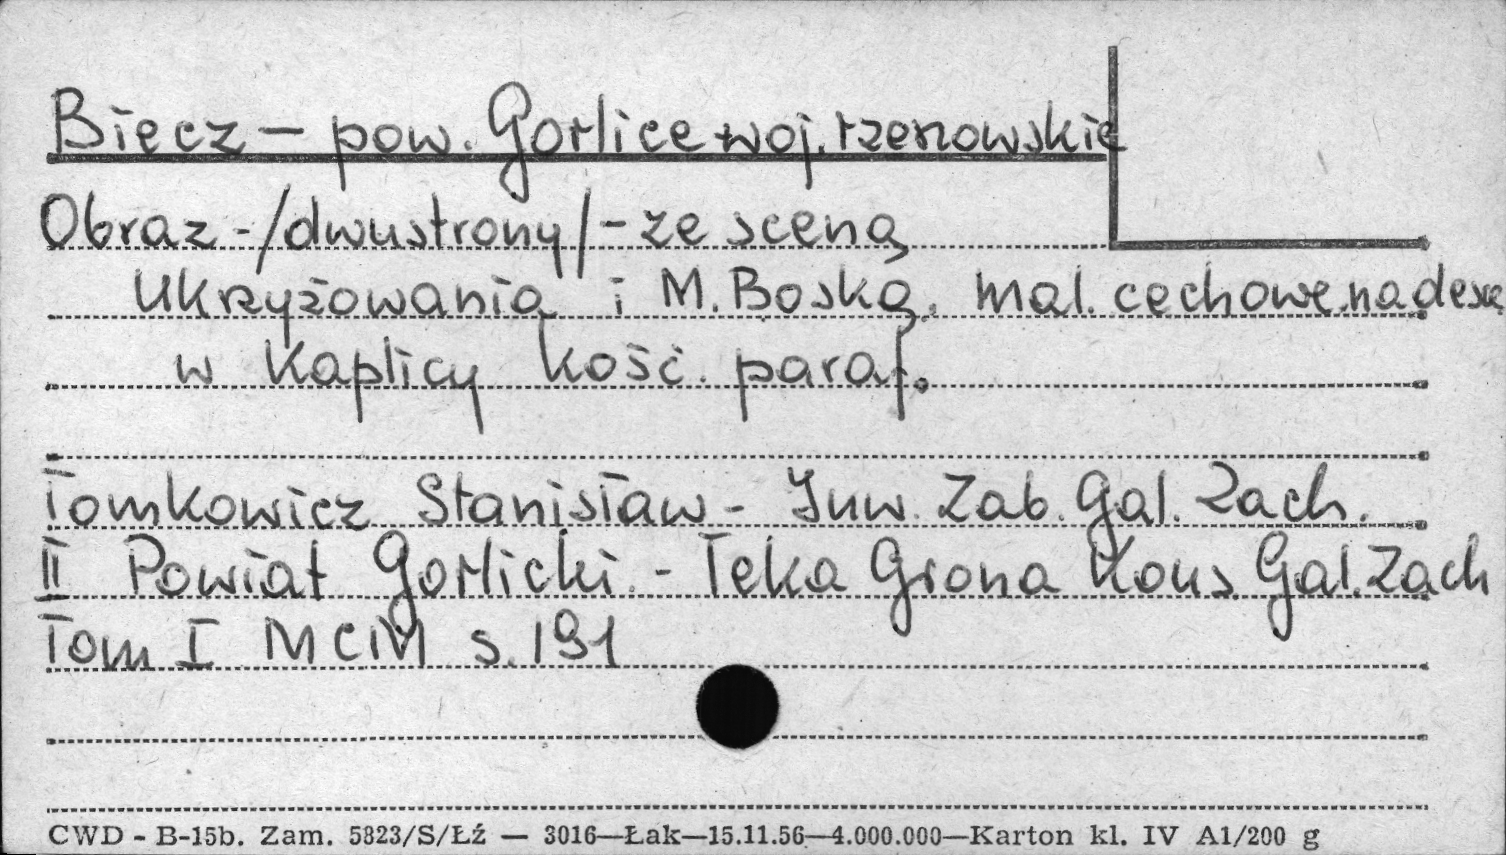 Biecz – pow. Gorlice woj. rzeszowskie
Obraz - /dwustrony/ - ze sceną
Ukrzyżowania i M. Boską. mal. cechowe, na desce
w Kaplicy kość. paraf.
Tomkowicz Stanisław - Inw. Zab. Gal. Zach.
II Powiat Gorlicki. - Teka Grona Kons. Gal. Zach
Tom I MCM s. 191
CWD - B-15b. Zam. 5823/S/Łź — 3016—Łak—15.11.56—4.000.000—Karton kl. IV A1/200 g